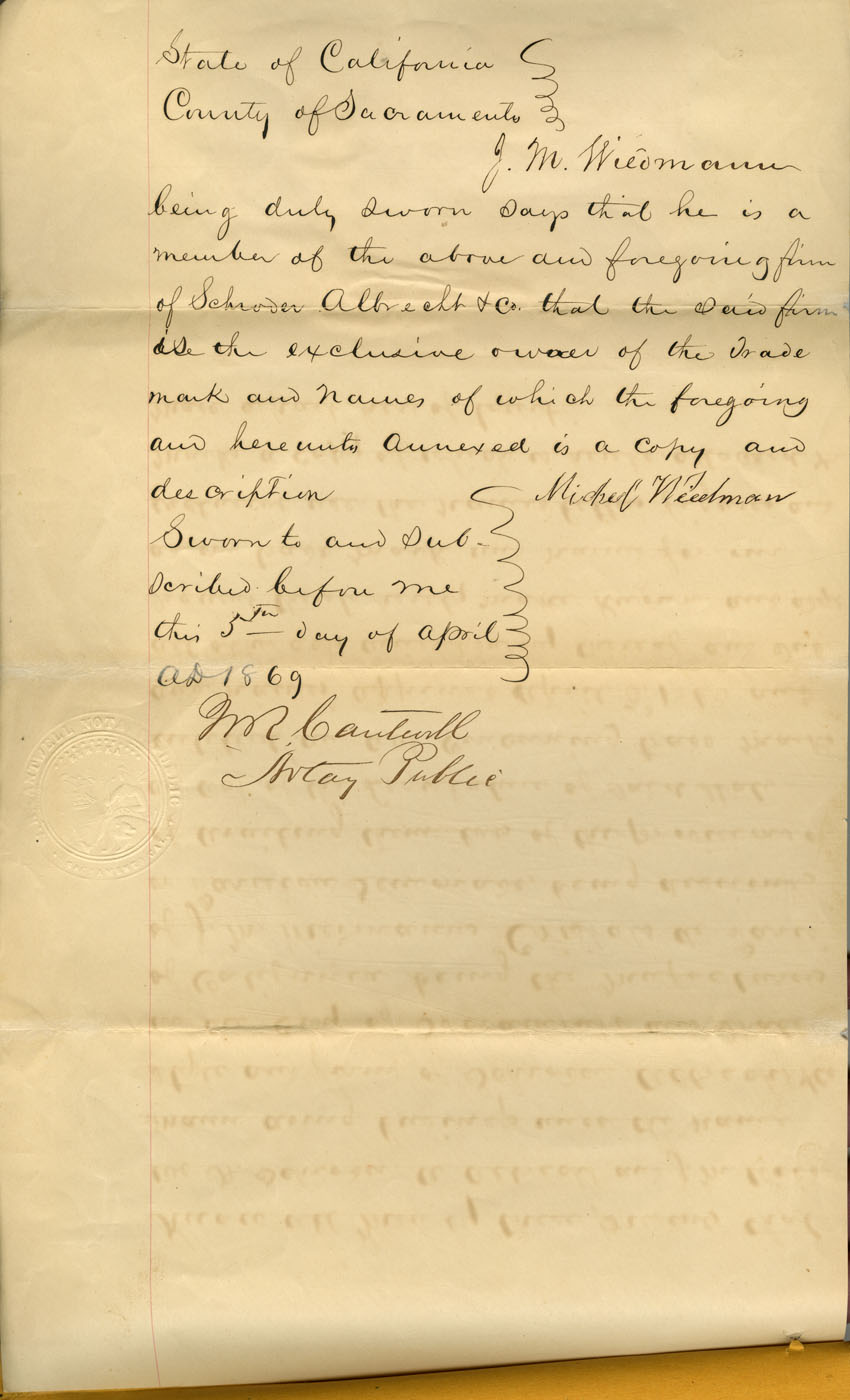 State of California
County of Sacramento
J. M. Wiedmann
being duly sworn says that he is a
member of the above and foregoing firm
of Schroder Albrecht & Co. that the said firm
is the exclusive owner of the Trade
mark and Names of which the foregoing
and hereunto Annexed is a copy and
description
Michel Wiedman
Sworn to and sub-
scribed before me
this 5th day of April
AD 1869
W R Cantwell
Notay Public